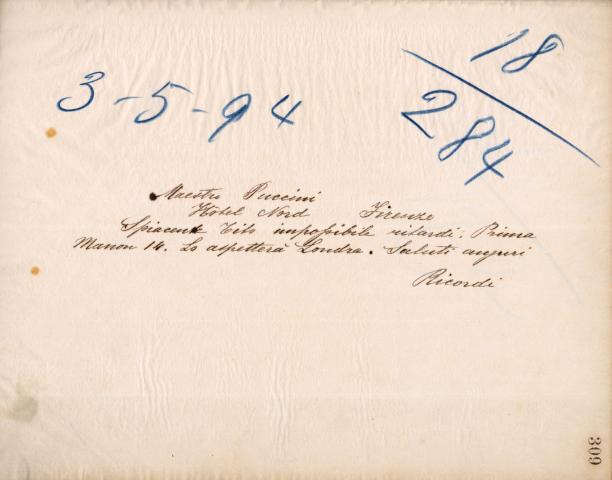 3-5-94
18
284
Maestro Puccini
Hôtel Nord Firenze
Spiacente Tito impossibile ritardi. Prima
Manon 14. Lo aspetterà Londra. Saluti auguri
Ricordi
309